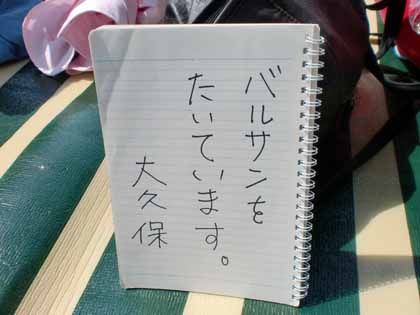 バルサンを
たいています。
大久保